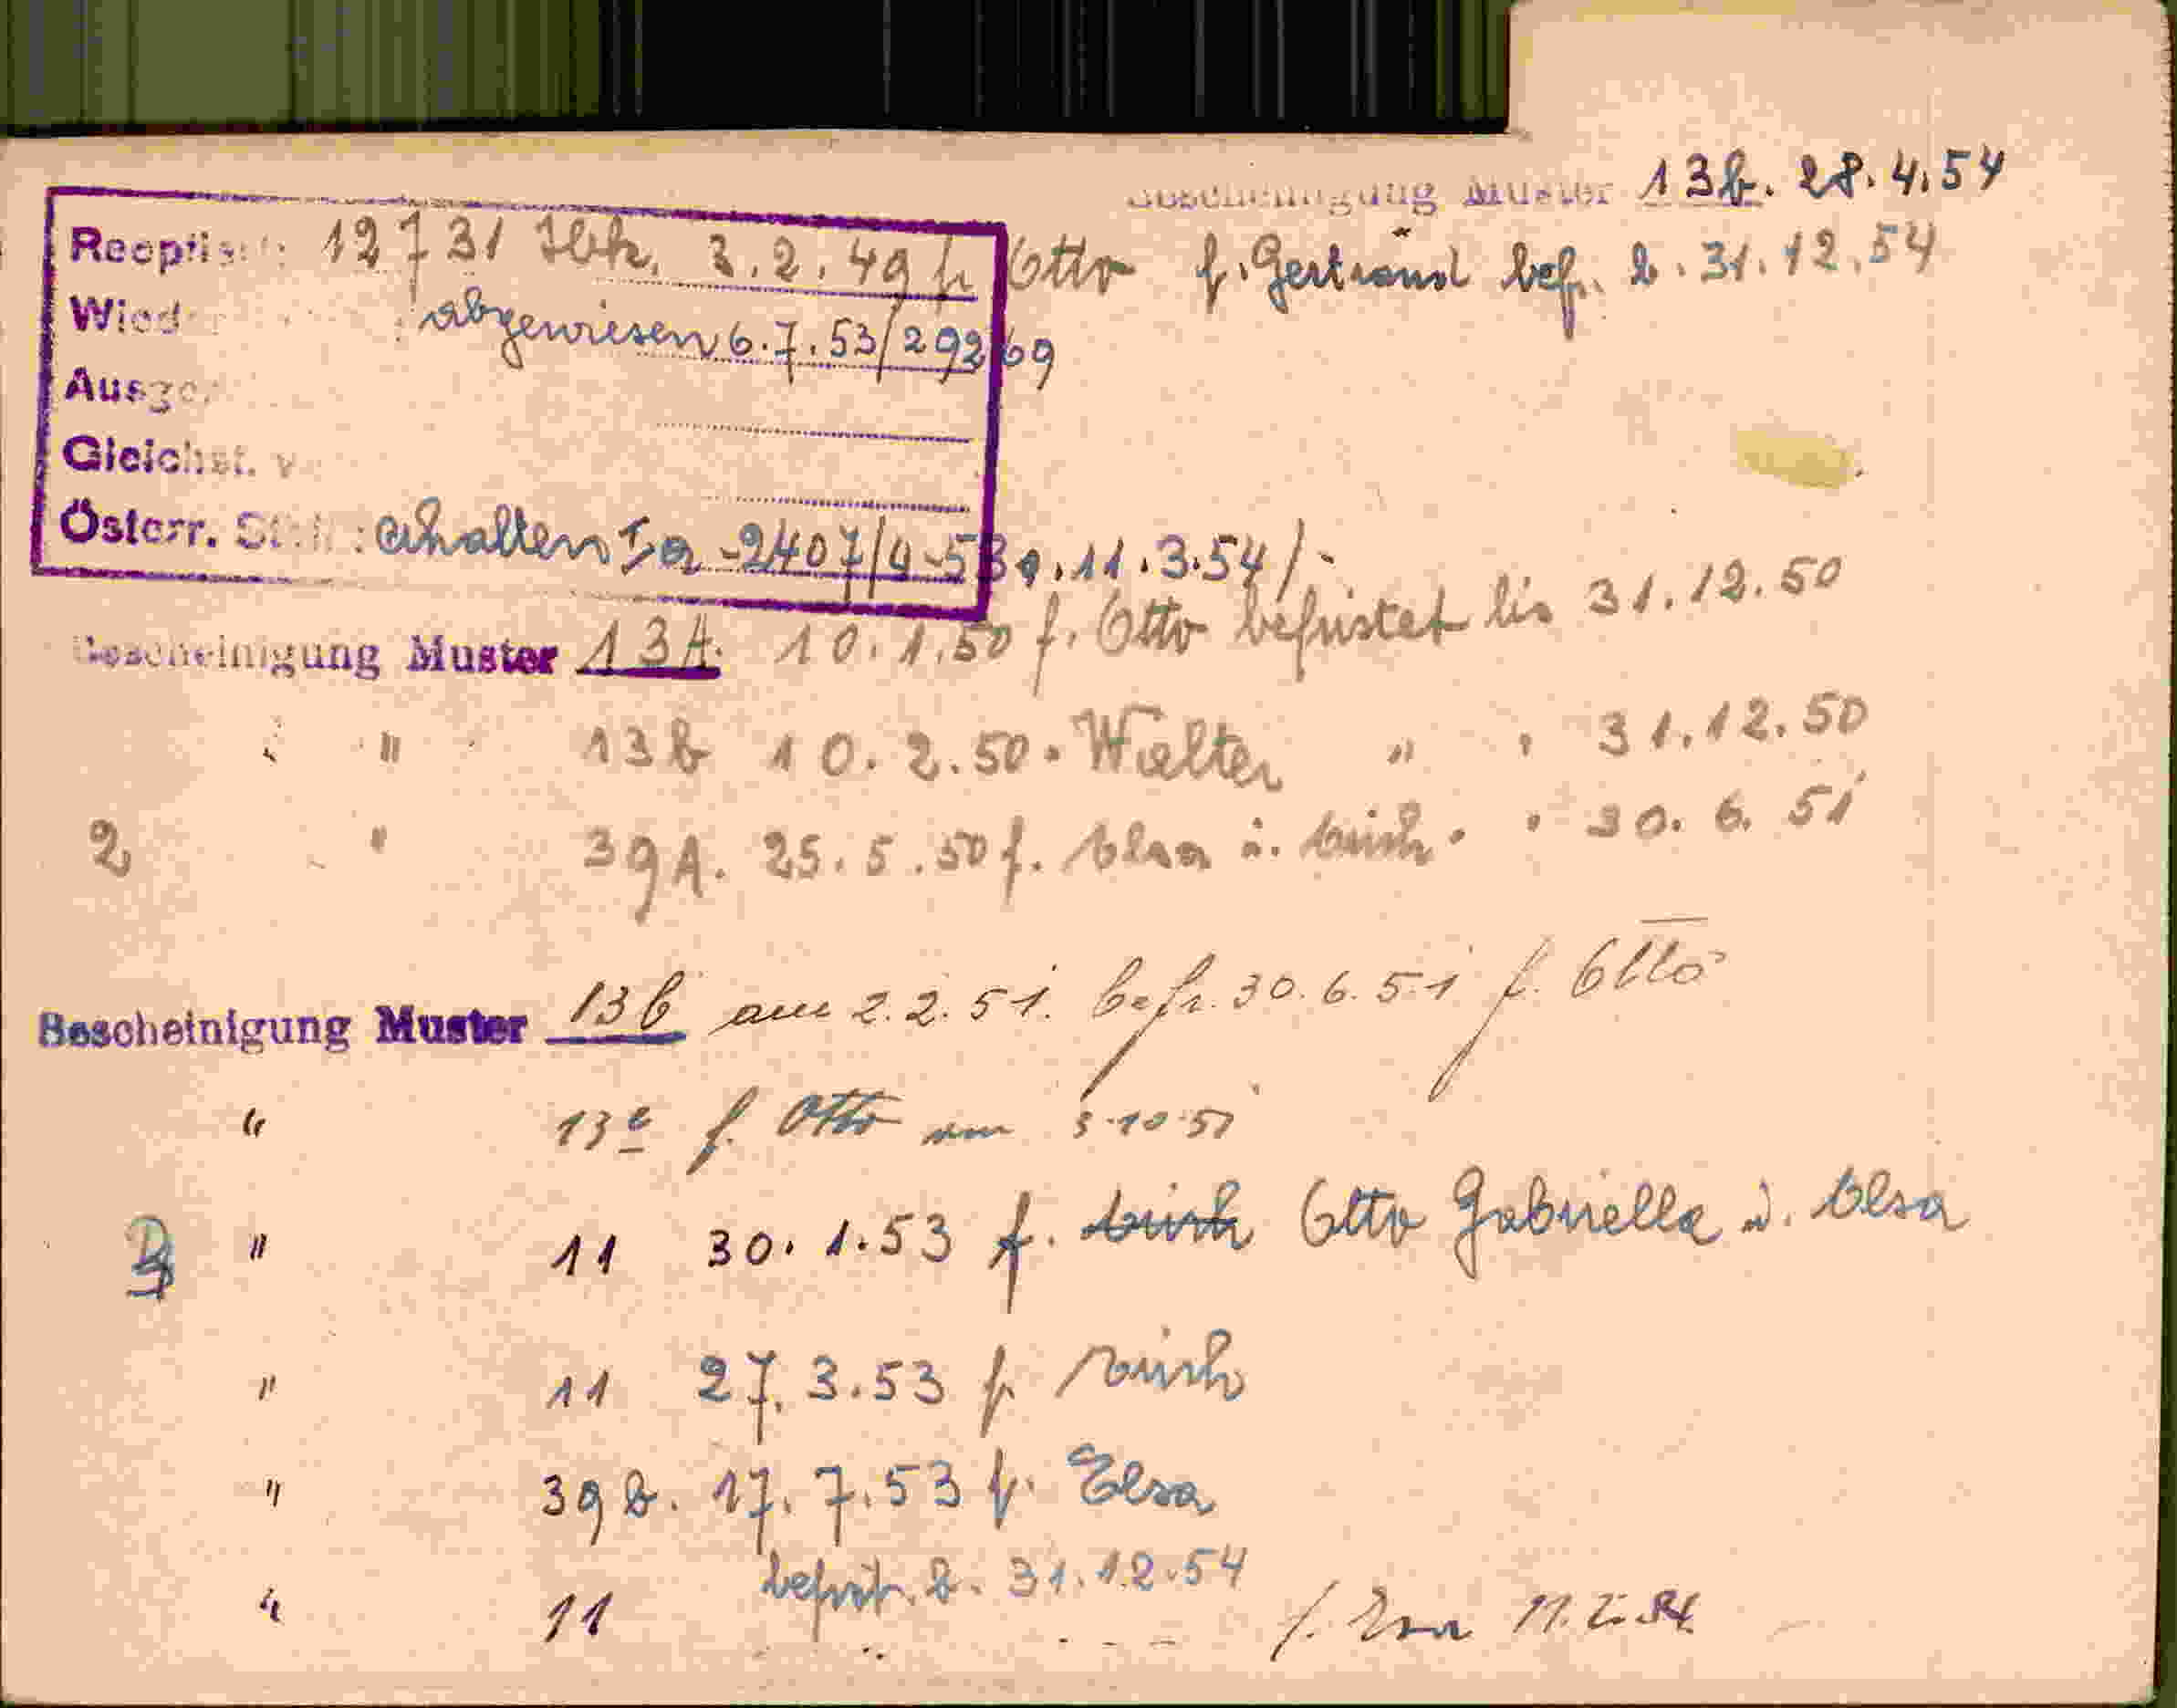 Bescheinigung Muster 13b. 28.4.54
Reoptiert: 12731 3.2.49 f. Otto f. Gertraud bef. b. 31.12.54
Wied : abgewiesen 6.7.53/29269
Ausge
Gleichst. v
Österr. St : erhalten Ia -2407/4-53 v. 11.3.54/-
Bescheinigung Muster 13A. 10.1.50 f. Otto befristet bis 31.12.50
" " 13b 10.2.50 " Walter " " 31.12.50
2 " 39A. 25.5.50 f. Elsa u. " " 30.6.51
Bescheinigung Muster 13b am 2.2.51. befr. 30.6.51 f. Otto
" 13c f. Otto am 3.10.51
3 " 11 30.1.53 f. Otto Gabriella u. Elsa
" 11 27.3.53 f.
" 39b. 17.7.53 f. Elsa
befrist. b. 31.12.54
" 11 f.